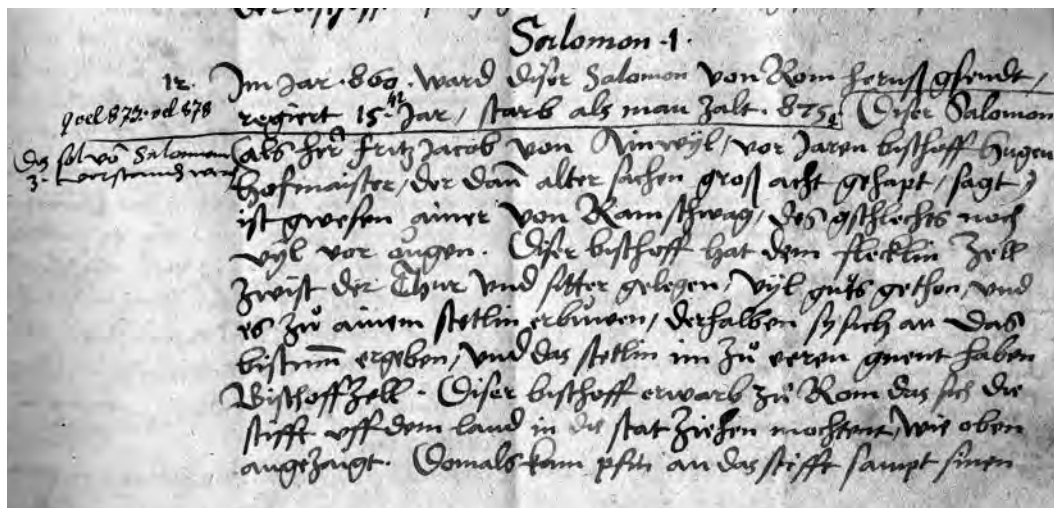 Salomon .1.
12. Im Jar .860. ward diser Salomon von Rom heruß gsendt,
9 vel 873. vel 878 regiert 15 Jar, starb als man zalt. 875. Diser Salomon
Das sol võ Salomon (als her Fritz Jacob von Ainwyl, vor Jaren bischoff Hugen
3. verstanden werden hofmaister, der dañ alter sachen groß acht gehapt, sagt)
ist gwesen ainer von Ramschwag, des gschlechts noch
vyl vor ougen. Diser bischoff hat dem flecklin Zell
zwist der Thur vnd sitter gelegen, vyl guͦts gethon, vnd
es zuͦ ainem stetlin erbuwen, derhalben sy sich an das
bistum̃ ergeben, vnd das stetlin im zuͦ eeren gnent haben
Bischoffzell. Diser bischoff erwarb zuͦ Rom das sich die
stifft vff dem land in die stat ziehen mochtent, wie oben
angezaigt. Domals kam pfin an das stifft sampt sinen